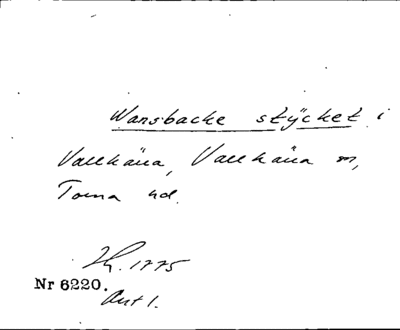 Wansbacke stÿcket i
Vallkärra, Vallkärra sn,
Torna hd.
1775
Nr 6220.
Akt 1.